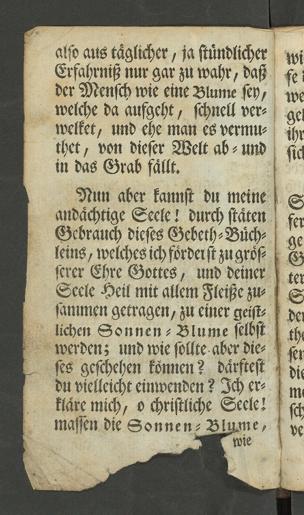 also aus täglicher, ja stündlicher
Erfahrniß nur gar zu wahr, daß
der Mensch wie eine Blume sey,
welche da aufgeht, schnell ver-
welket, und ehe man es vermu-
thet, von dieser Welt ab- und
in das Grab fällt.
Nun aber kannst du meine
andächtige Seele! durch stäten
Gebrauch dieses Gebeth-Büch-
leins, welches ich förderst zu grös-
serer Ehre Gottes, und deiner
Seele Heil mit allem Fleiße zu-
sammen getragen, zu einer geist-
lichen Sonnen-Blume selbst
werden; und wie sollte aber die-
ses geschehen können? därftest
du vielleicht einwenden? Ich er-
kläre mich, o christliche Seele!
massen die Sonnen-Blume,
wie